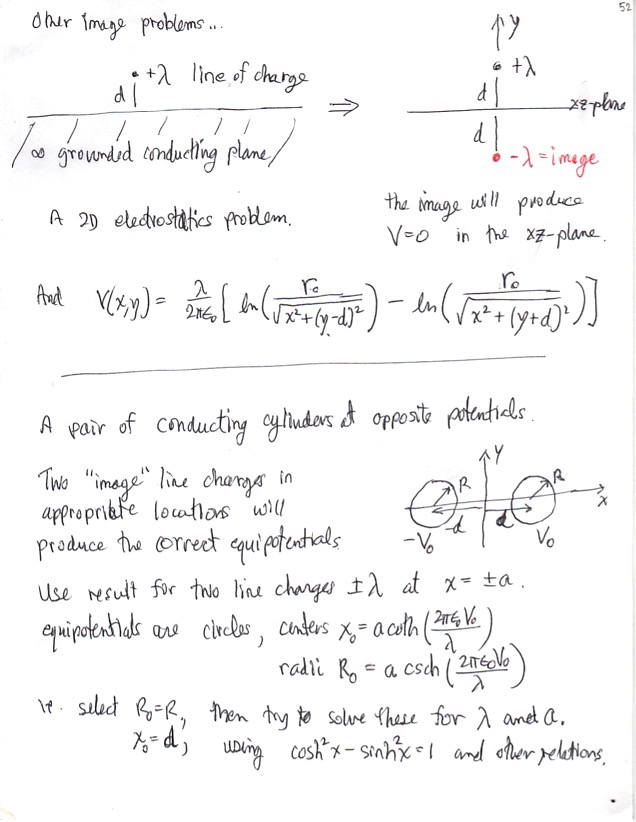 52
Other image problems...
+λ line of charge
d
∞ grounded conducting plane
⇒
y
+λ
d
xz-plane
d
-λ = image
A 2D electrostatics problem.
the image will produce
V=0 in the xz-plane.
And V(x,y) = λ/2πε₀ [ ln( r₀/√(x²+(y-d)²) ) - ln( r₀/√(x²+(y+d)²) ) ]
A pair of conducting cylinders at opposite potentials.
Two "image" line charges in
appropriate locations will
produce the correct equipotentials
y
R
R
x
-d
d
-V₀
V₀
Use result for two line charges ±λ at x = ±a.
equipotentials are circles, centers x₀ = a coth( 2πε₀V₀/λ )
radii R₀ = a csch( 2πε₀V₀/λ )
ie. select R₀=R, then try to solve these for λ and a.
x₀=d, using cosh²x - sinh²x = 1 and other relations.